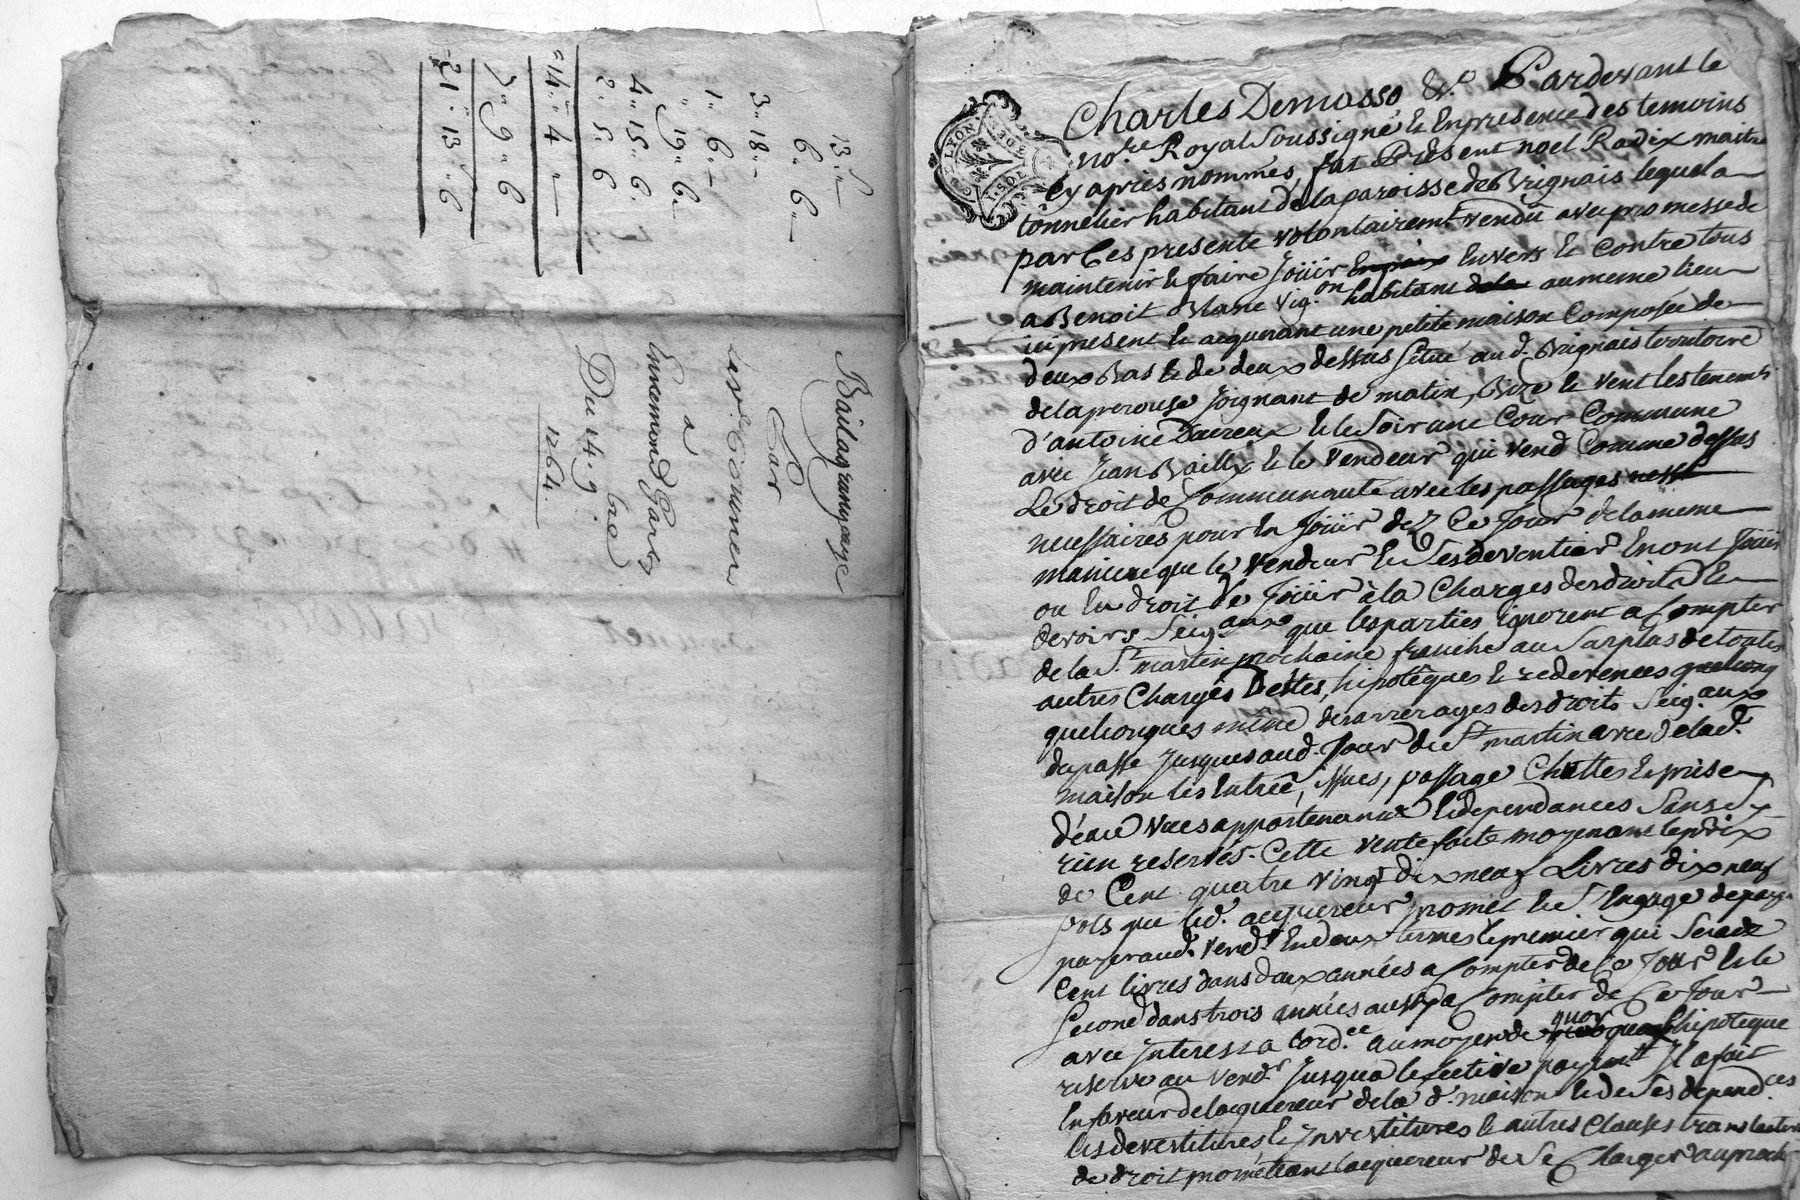 13 s
6 " 6 "
3 " 18 "
1 " 6 "
" 19 " 6
4 " 15 " 6
2 " 5 " 6
14 " 4 "
7 " 9 " 6
21 " 13 " 6
Bail a grangeage
Par
a
Ennemond
Du 14. 9bre
1764
LYON
Charles Demasso &a Pardevant le
nore. Royal Soussigné & En presence des temoins
cy apres nommés, fut Present noel Radix maitre
tonnelier habitant de la paroisse de Brignais lequel a
par Ces presente volontairemt. vendu avec promesse de
maintenir & faire Joüir Enpaix Envers & Contre tous
a Benoit Blanc Vig.on habitant dela au meme lieu
ici present & acquerant une petite maison Composée de
deux Bas & de deux dessus Situé aud. Brignais territoire
de la perouse Joignant de matin, Bize & vent les tenemts
d'antoine & le Soir une Cour Commune
avec Jean Bailly & le Vendeur qui vend Comme dessus
Le droit de Communauté avec les passages
necessaires pour En Joüir dez Ce Jour de la meme
maniere que le Vendeur & Ses devantier En ont Joüir
ou Eu droit de Joüir à la Charges des droits &
devoirs Seig.aux que les parties ignorent a Compter
de la St. martin prochaine franche au Surplus de toutes
autres Charges Dettes, hipotêques & redevences quelconq
quelconques même des arrerages des droits Seig.aux
du passé Jusques aud. Jour de St. martin avec de lad.
maison les Entrée, issues, passage Chuttes & prise
d'éau vues appartenance & dependances Sans En
rien reserves. Cette vente faite moyenant le prix
de Cent quatre vingt dix neuf Livres dix neuf
sols que led. acquereur promet & S'Engage de paye
payer aud. Vend.r En deux termes le premier qui Sera de
Cent livres dans deux années a Compter de Ce Jour & le
Second dans trois années aussy a Compter de Ce Jour
avec Interest a Cord.ce au moyen de hipoteque
reserve au vendr. Jusqua leffective payemt. Il a fait
En faveur de lacquereur de la d. maison & de Ses depend.ces
les devestitures & Investitures & autres Clauses translative
de droit promettant lacquereur de Se Charger au proche